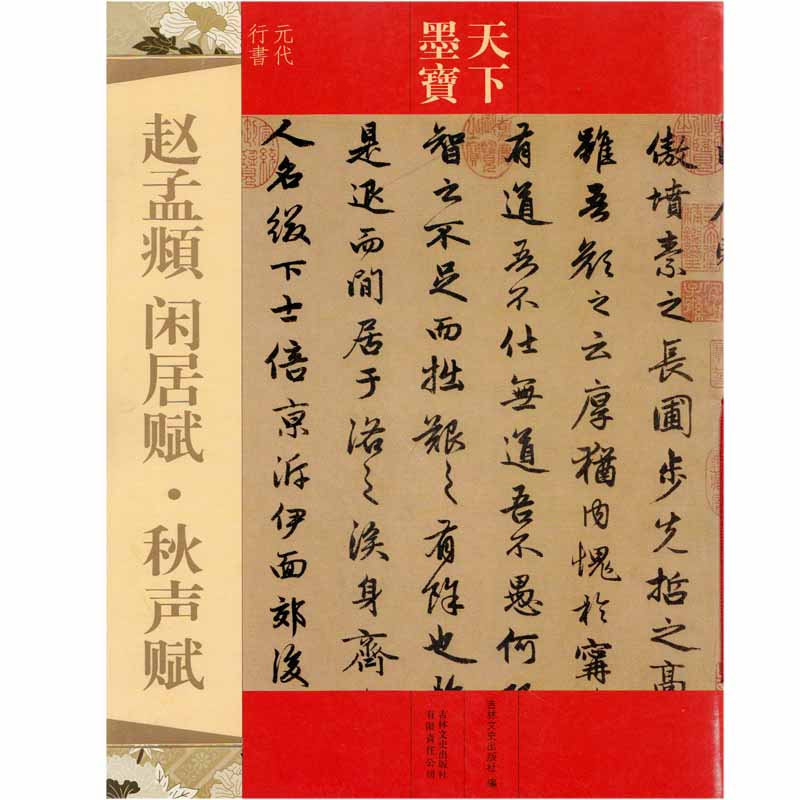 天下
墨寶
元代
行書
赵孟頫 闲居赋·秋声赋
傲墳素之長圃步先哲之高
雖吾顏之云厚猶內愧於甯
有道吾不仕無道吾不愚何
智之不足而拙艱之有餘也
是退而閒居于洛之涘身齊
人名綴下士倍京泝伊面郊後
吉林文史出版社 编
吉林文史出版社
有限责任公司